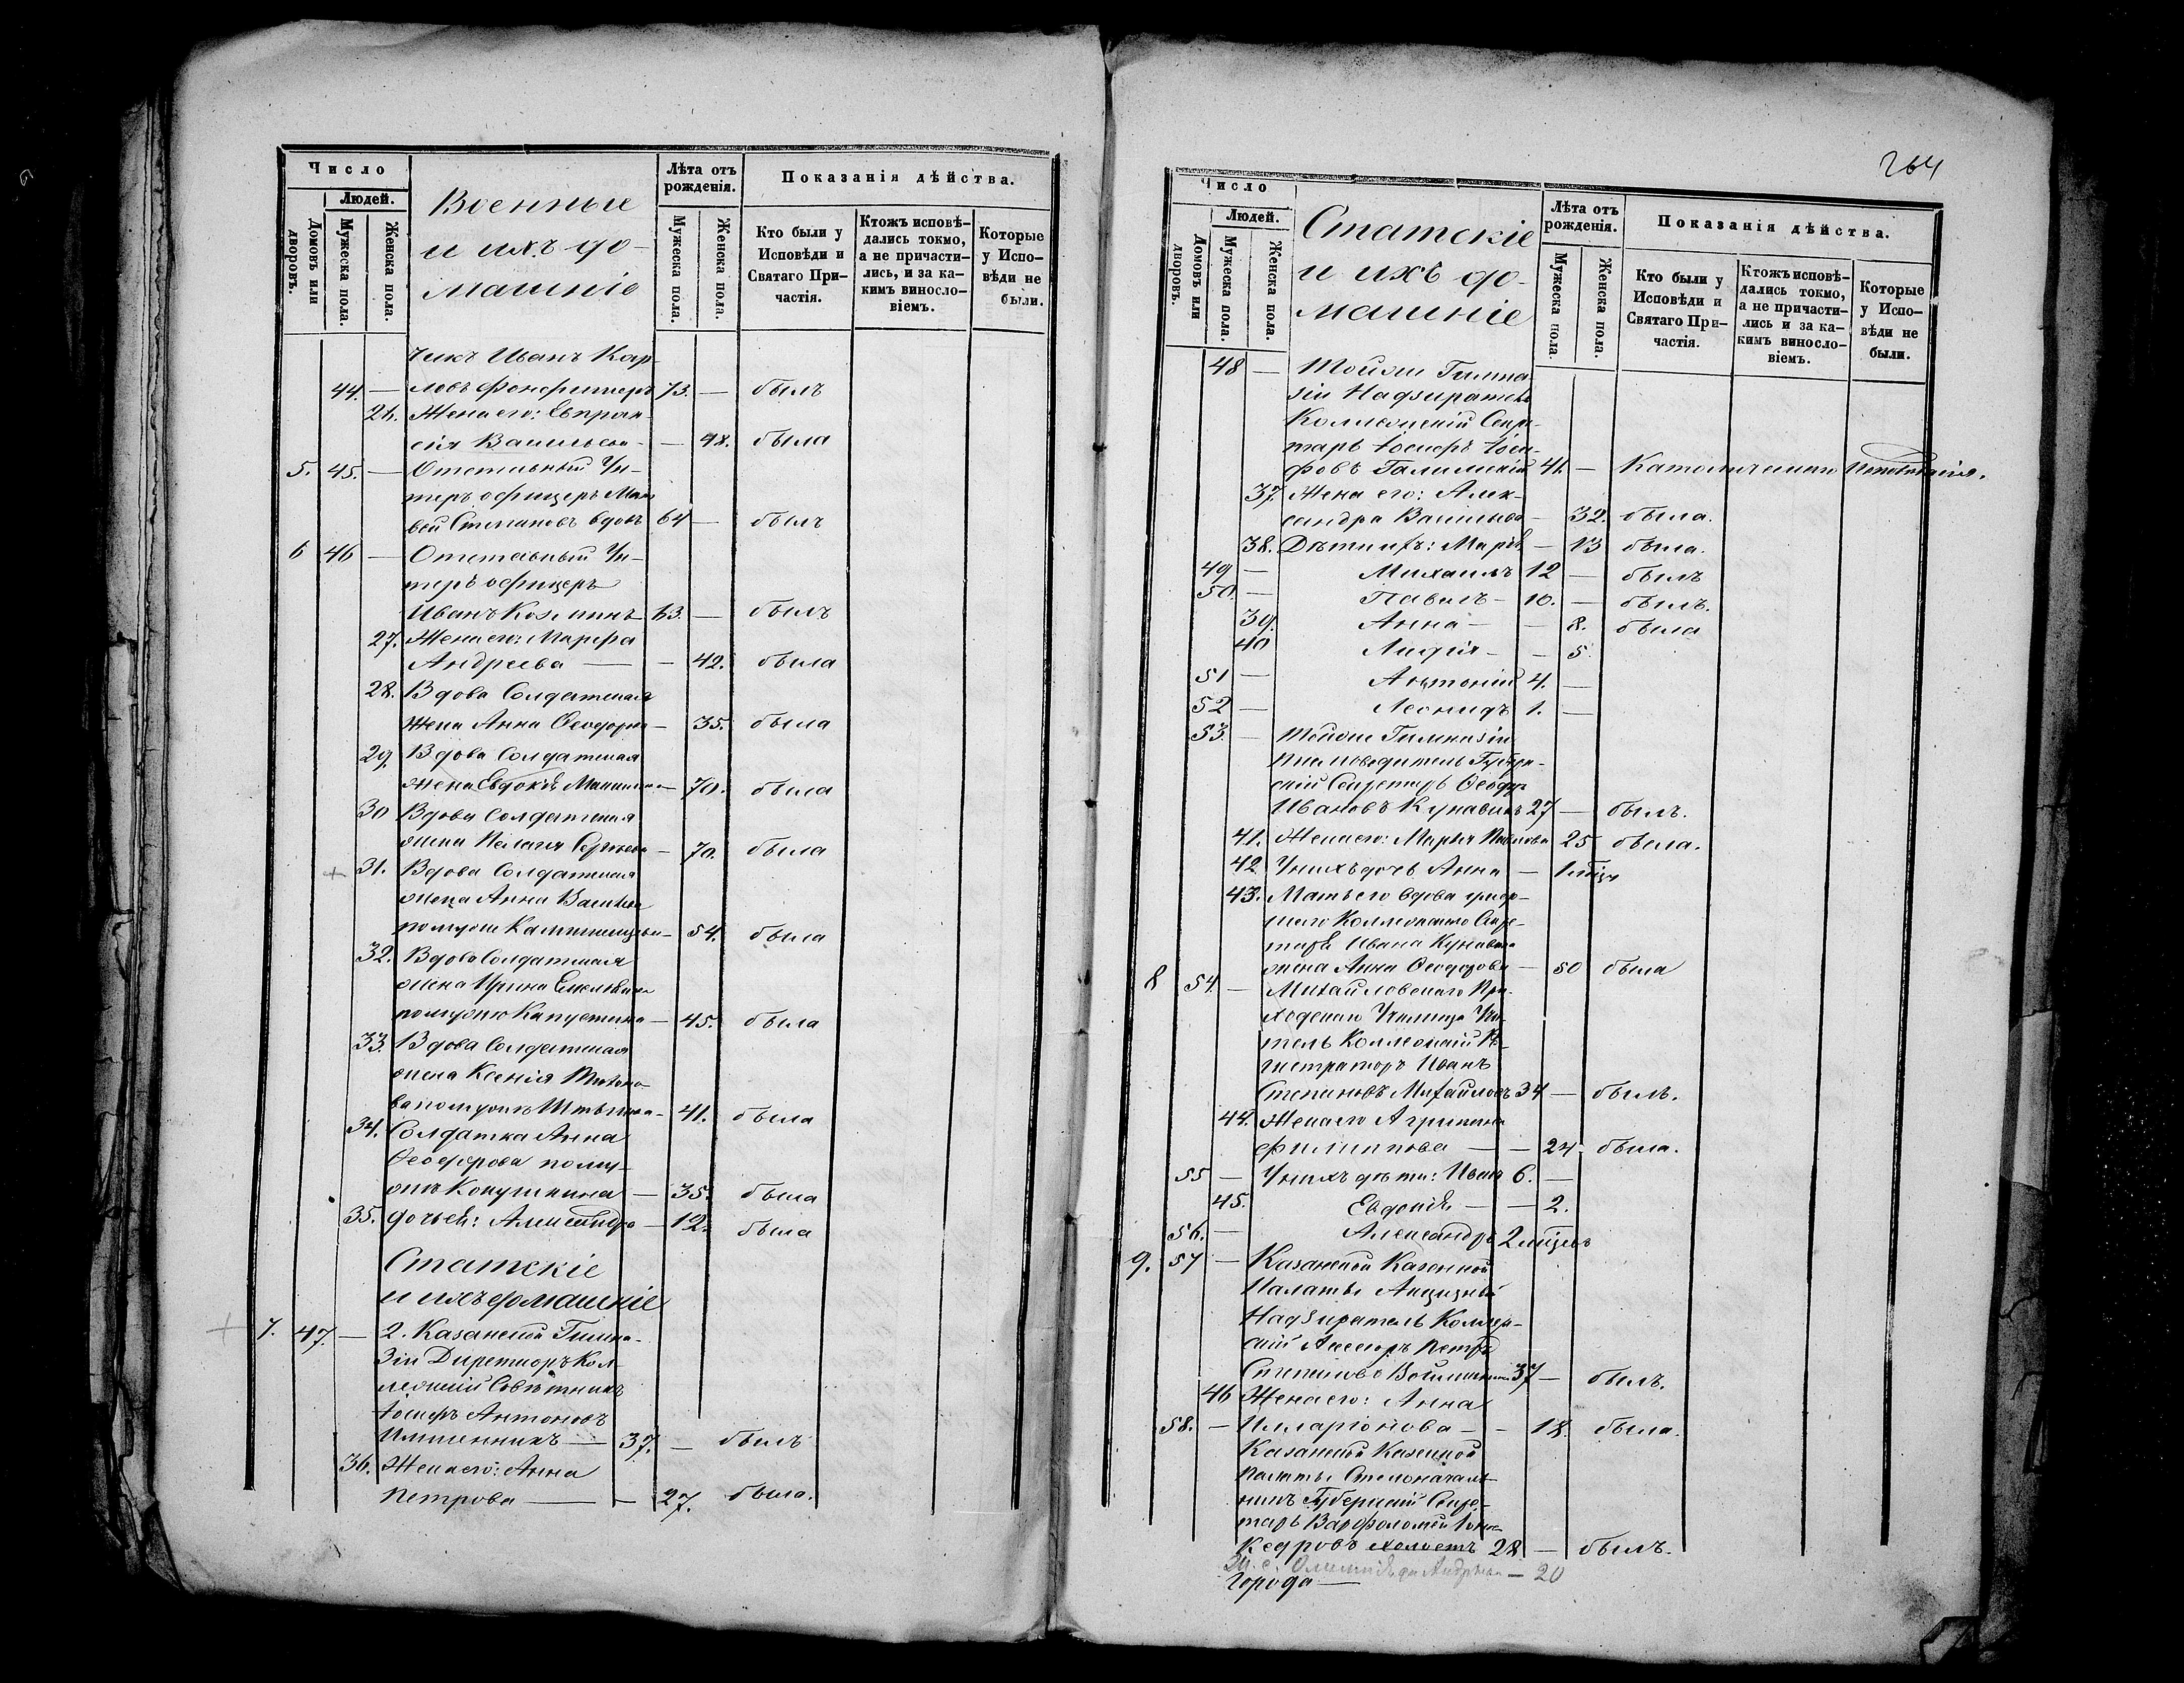 Число
Людей.
Домовъ или дворовъ.
Мужеска пола.
Женска пола.
Военные
и ихъ до-
машніе
Лѣта отъ рожденія.
Мужеска пола.
Женска пола.
Показанія дѣйства.
Кто были у Исповѣди и Святаго При-частія.
Ктожъ исповѣ-дались токмо, а не причасти-лись, и за ка-кимъ винослo-віемъ.
Которые у Испо-вѣди не были.
чикъ Иванъ Кар-
44. — ловъ 73. — былъ
24. Жена его: Евпрак-
сія Васильева — 48. была
5. 45. — Отставный Ун-
теръ офицеръ Мат
вѣй Степановъ вдовъ 64 — былъ
6 46 — Отставный Ун-
теръ офицеръ
Иванъ 63. — былъ
27. Жена его: Марфа
Андреева — — 42. была
28. Вдова Солдатская
жена Анна Ѳеодорова — 35. была
29. Вдова Солдатская
жена Евдокія — 70. была
30 Вдова Солдатская
жена Пелагія Сергѣева — 70. была
31. Вдова Солдатская
жена Анна Васильева
помужѣ — 54. была
32. Вдова Солдатская
жена Ирина Емельянова
помужю Капустина — 45. была
33. Вдова Солдатская
жена Ксенія
ва помужѣ — 41. была
34. Солдатка Анна
Ѳеодорова пому-
жѣ — 35. была
35. дочь ея: Александра — 12. была
Статскіе
и ихъ домашніе
7. 47. — 2. Казанской Гимна-
зіи Директоръ Кол-
лежскій Совѣтникъ
Іосифъ Антоновъ
— 37. — былъ
36. Жена его: Анна
Петрова — — 27. была.
264
Число
Людей.
Домовъ или дворовъ.
Мужеска пола.
Женска пола.
Статскіе
и ихъ до-
машніе
Лѣта отъ рожденія.
Мужеска пола.
Женска пола.
Показанія дѣйства.
Кто были у Исповѣди и Святаго При-частія.
Ктожъ исповѣ-дались токмо, а не причасти-лись и за ка-кимъ винослo-віемъ.
Которые у Испо-вѣди не были.
48 — Тойже Гимна
зіи Надзиратель
Коллежскій Секре-
тарь Іосифъ Іоси-
фовъ 41. — Католическаго Исповѣданія.
37. Жена его: Алек-
сандра Васильева — 32. была.
38. Дѣти ихъ: Марія — 13 была.
49 — Михаилъ 12 — былъ
50. — Павелъ — 10. — былъ.
39. Анна — — 8. была
40 Лидія — — 5.
51 — Антоній 4. —
52 — Леонидъ 1. —
53. — Тойже Гимназіи
Письмоводитель Губерн-
скій Секретарь Ѳеодоръ
Ивановъ 27 — былъ.
41. Жена его: Марія Павлова 25 была.
42. У нихъ дочь Анна — 1 мѣся
43. Мать его вдова умер-
шаго Коллежскаго Секре-
таря Ивана
жена Анна Ѳеодорова — 50 была
8 54. — Михайловскаго При-
ходскаго Училища Учи-
тель Коллежскій Ре-
гистраторъ Иванъ
Степановъ Михайловъ 34 — былъ.
44. Жена его Агрипина
Филиппова — — 24. была.
55 — У нихъ дѣти: Иванъ 6. —
45. Евдокія — — 2.
56. — Александръ 2 мѣсяцевъ
9. 57 — Казанской Казенной
Палаты Акцизный
Надзиратель Коллеж-
скій Ассесоръ Петръ
Степановъ 37 — былъ.
46 Жена его: Анна
58. — Илларіонова — — 18. была.
Казанской Казенной
Палаты Столоначаль-
никъ Губернскій Секре-
тарь Варфоломей
Кедровъ холостъ 28 — былъ.
Андреева — 20
Города —